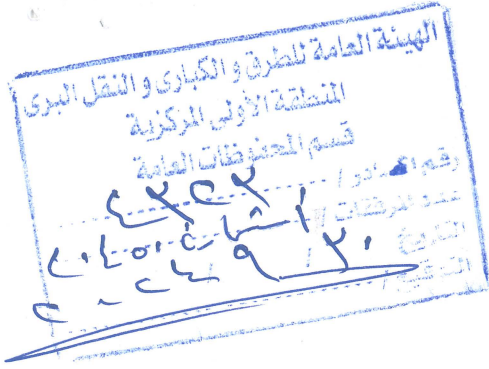 الهيئة العامة للطرق و الكبارى و النقل البرى
المنطقة الأولى المركزية
قسم المحفوظات العامة
رقم الصادر / ٤٣٢٣
عدد المرفقات /
التاريخ ٣٠ / ٩ / ٢٠٢٤
التوقيع /